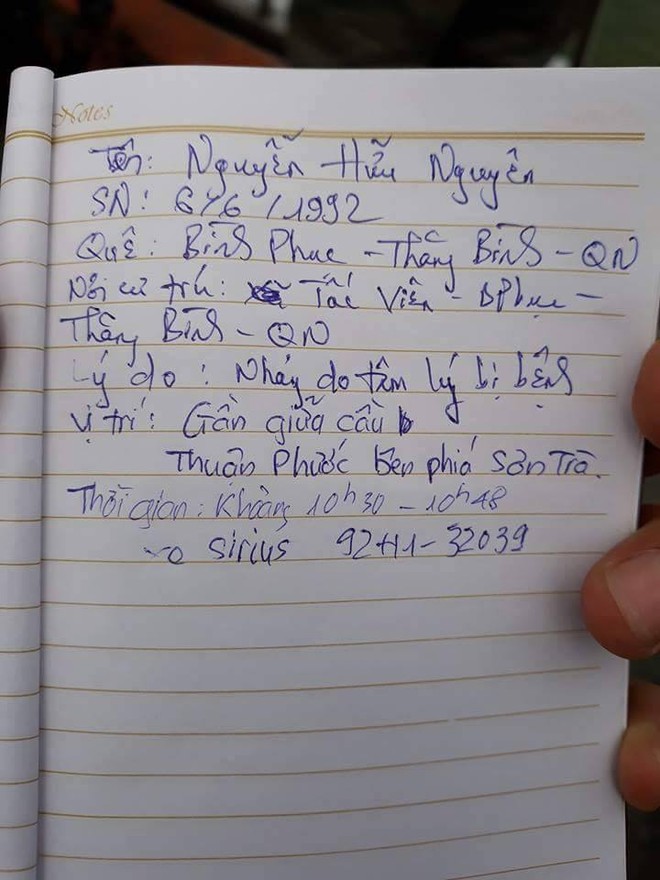 Notes
Tên: Nguyễn Hữu Nguyên
SN: 6/6/1992
Quê: Bình Phục - Thăng Bình - QN
Nơi cư trú: Tất Viên - BPhục -
Thăng Bình - QN
Lý do: Nhảy do tâm lý bị bệnh
Vị trí: Gần giữa cầu
Thuận Phước bên phía Sơn Trà.
Thời gian: Khoảng 10h30 - 10h48
sirius 92H1-32039